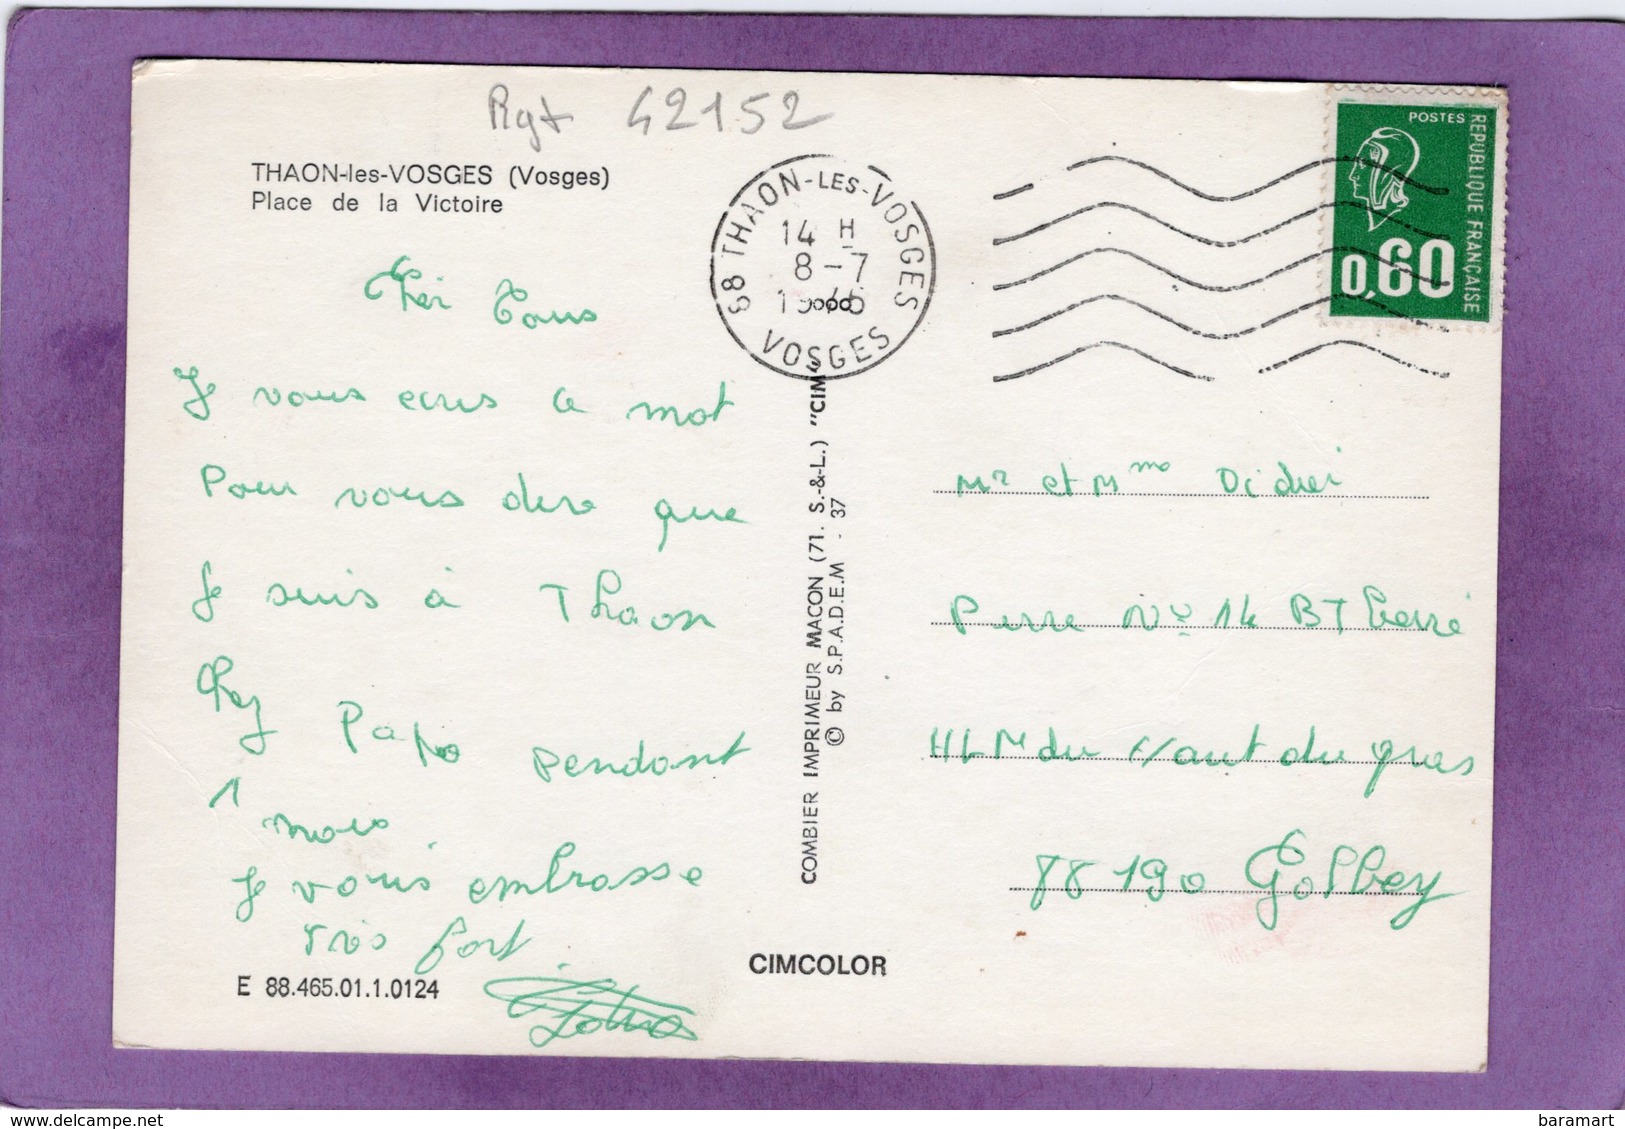 Rgt 42152
THAON-les-VOSGES (Vosges)
Place de la Victoire
Cher Tous
Je vous ecris ce mot
Pour vous dire que
Je suis à Thaon
Chez Papa pendant
1 mois
Je vous embrasse
très fort.
E 88.465.01.1.0124
CIMCOLOR
COMBIER IMPRIMEUR MACON (71. S.-&-L.) "CIM"
© by S.P.A.D.E.M - 37
88 THAON-LES-VOSGES
14 H
8-7
1976
VOSGES
POSTES
REPUBLIQUE FRANÇAISE
0,60
Mr et Mme Didier
Pierre No 14 BT
HLM du Haut du gras
88190 Golbey
delcampe.net
baramart